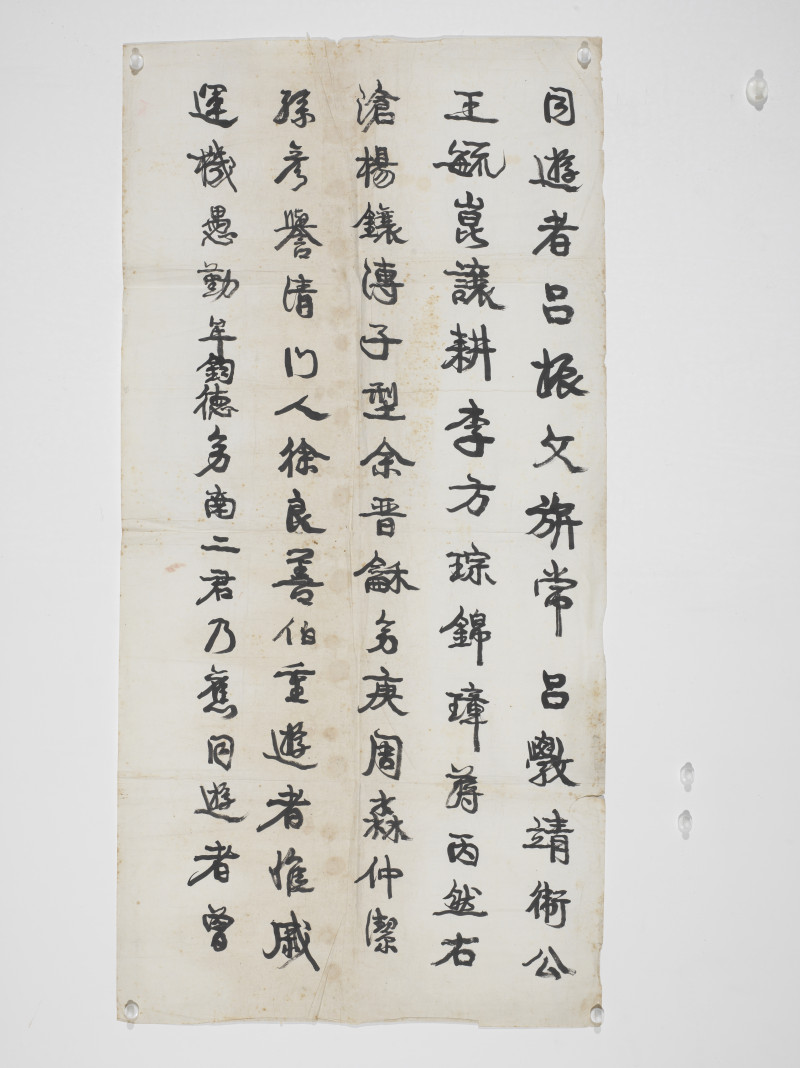 同遊者呂振文旂常呂斅靖術公
王毓崑讓耕李方琮錦璋蔣丙然右
滄楊鑲漙子型余晋龢魯庚周森仲潔
孫彥譽清門人徐良善伯重遊者惟戚
運機愚勤牟鈞德魯南二君乃舊同遊者曾